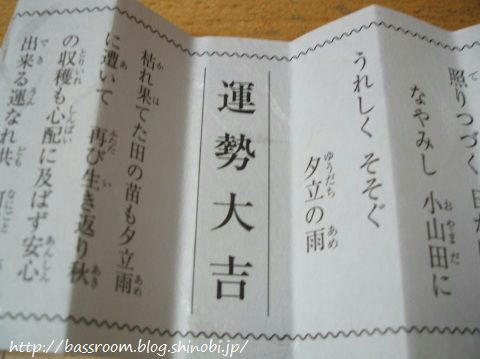 照りつづく
なやみし 小山田に
うれしく そそぐ
夕立の雨
運勢大吉
枯れ果てた田の苗も夕立雨
に遭いて 再び生き返り秋
の収穫も心配に及ばず安心
出来る運なれ共
http://bassroom.blog.shinobi.jp/